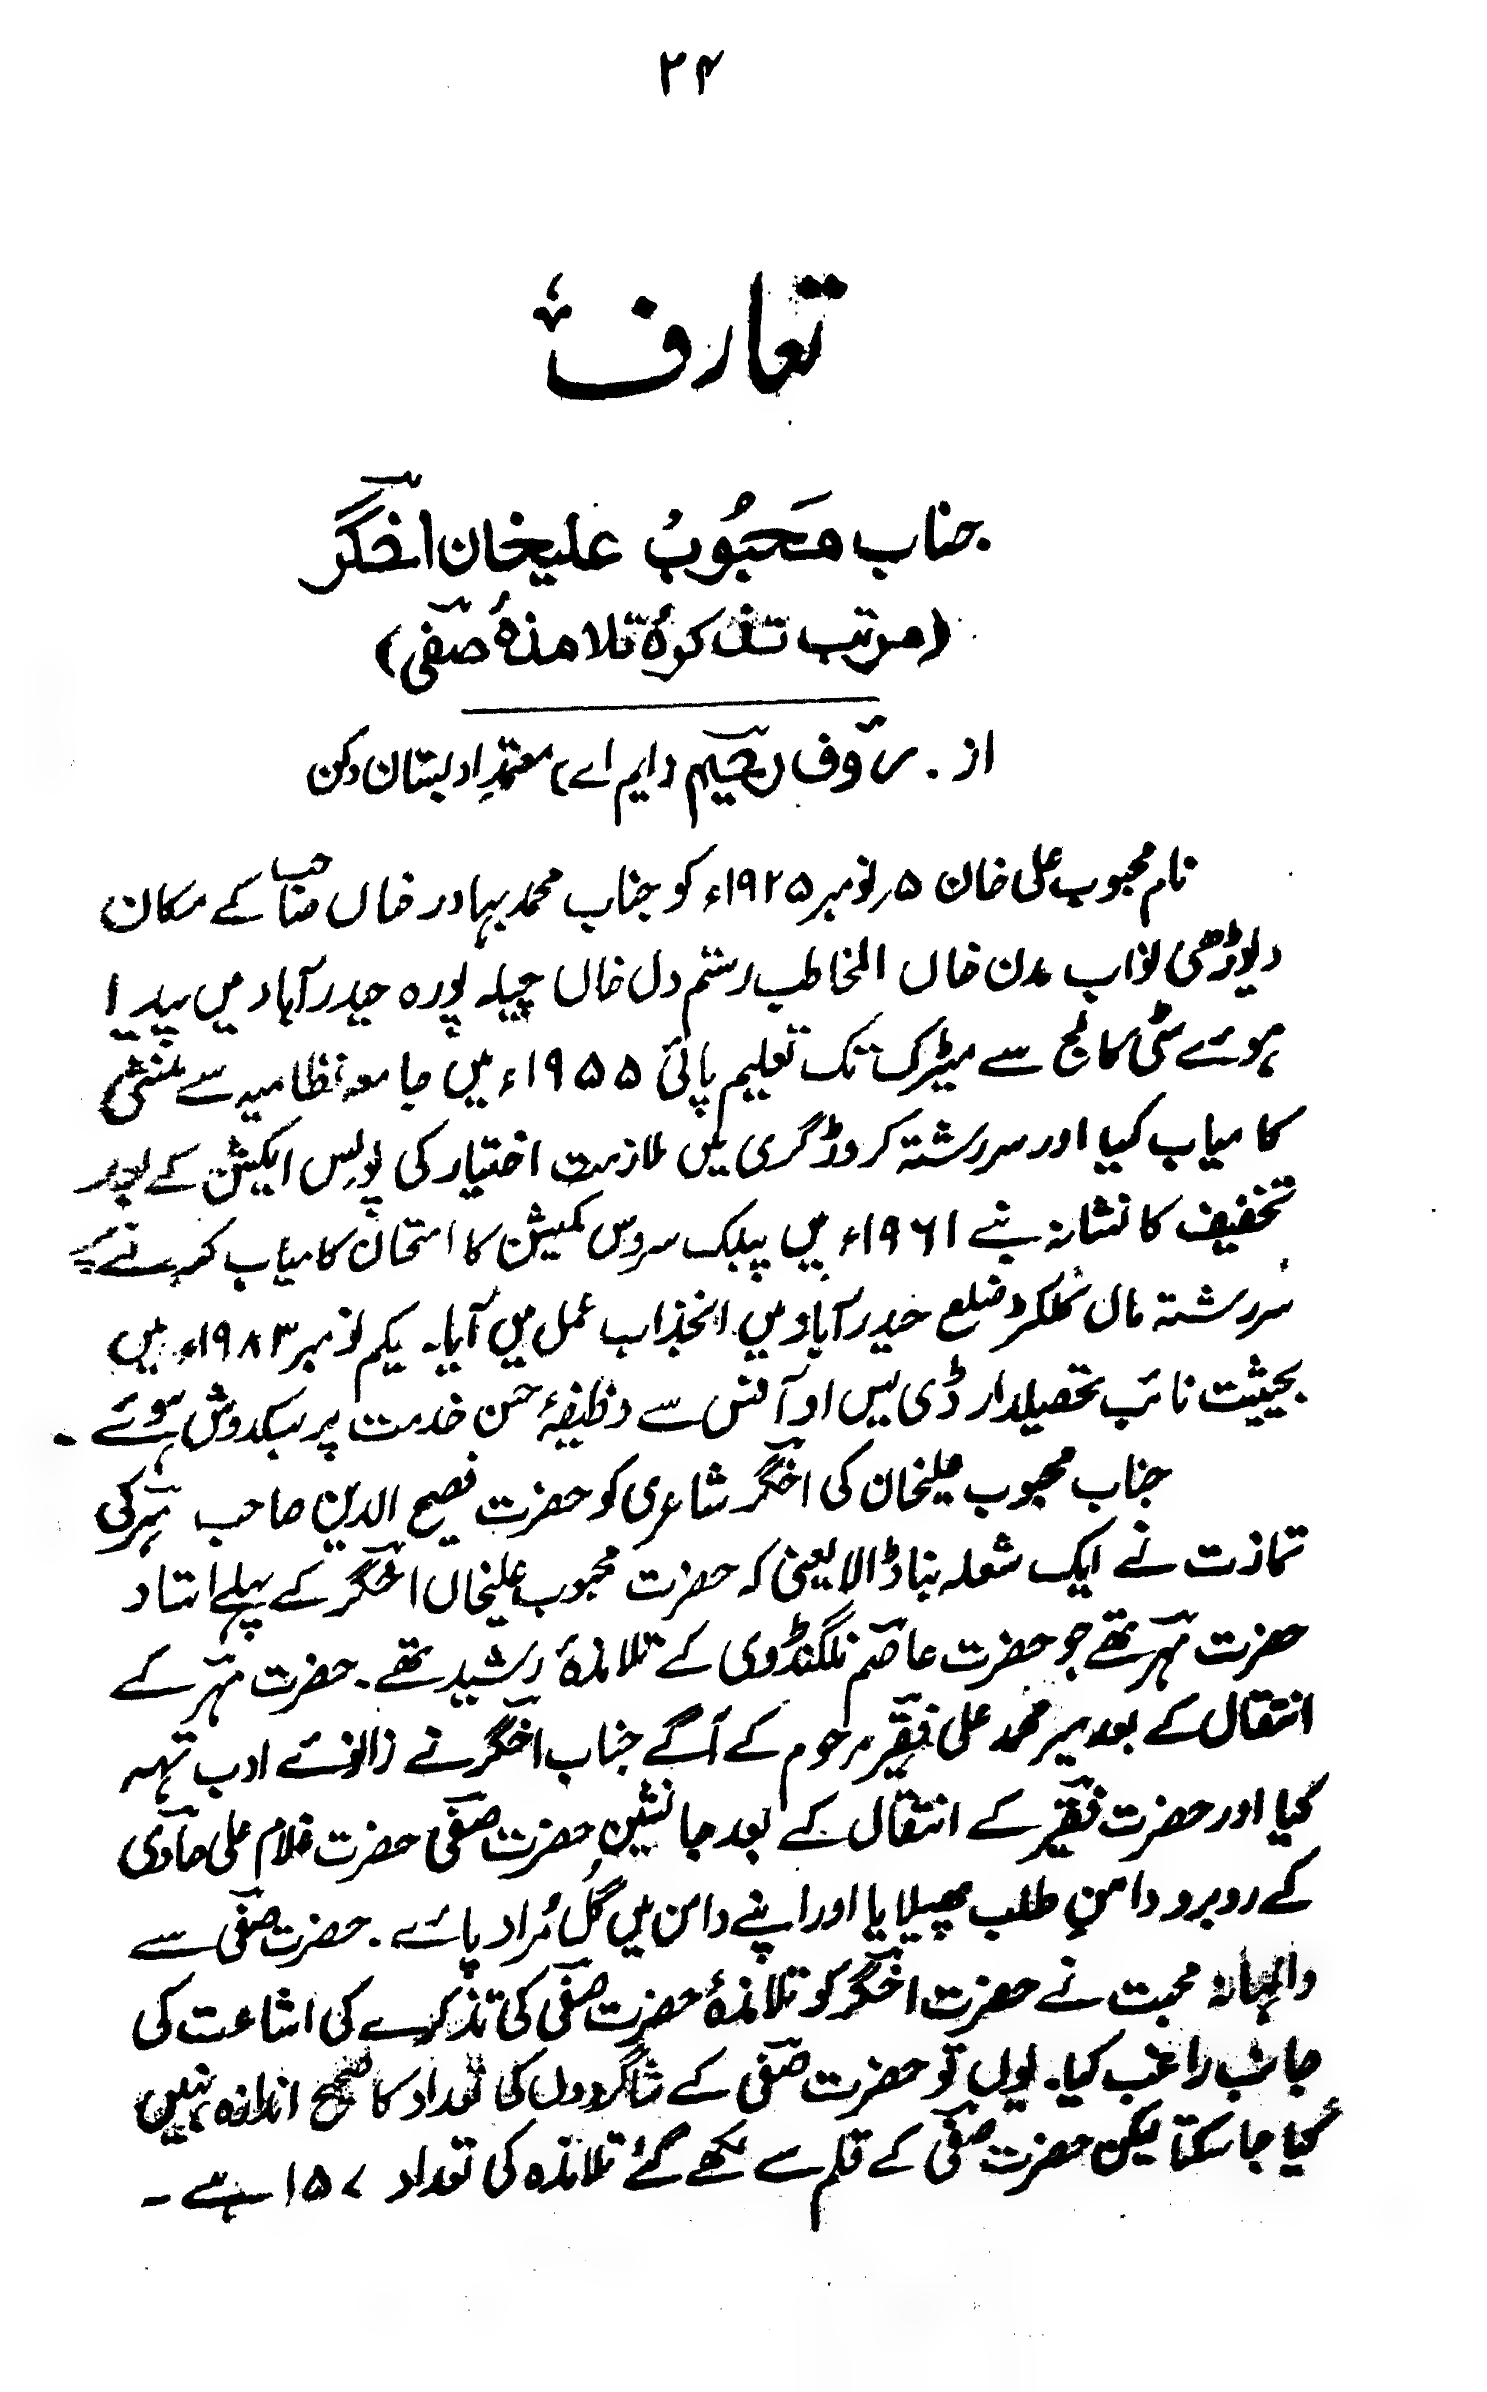 ۲۴
تعارف
جناب محبوب علیخان اخگر
(مرتب تذکرۂ تلامذۂ صفی)
از۔ رؤف رحیم (ایم اے) معتمد ادبستان دکن
نام محبوب علی خان ۵؍نومبر ۱۹۲۵ء کو جناب محمد بہادر خاں صاحب کے مکان
دیوڑھی نواب مدن خاں المخاطب رستم دل خاں چیلہ پورہ حیدرآباد میں پیدا
ہوے سٹی کالج سے میٹرک تک تعلیم پائی ۱۹۵۵ء میں جامعہ نظامیہ سے منشی
کامیاب کیا اور سررشتہ کروڈگری میں ملازمت اختیار کی پولس ایکشن کے بعد
تخفیف کا نشانہ بنے ۱۹۶۱ء میں پبلک سروس کمیشن کا امتحان کامیاب کرنے پر
سررشتہ مال کلکٹر ضلع حیدرآباد میں انجذاب عمل میں آیا۔ یکم نومبر ۱۹۸۳ء میں
بحیثیت نائب تحصیلدار ڈی یس او آفس سے وظیفۂ حسن خدمت پر سبکدوش ہوئے۔
جناب محبوب علیخان کی اخگر شاعری کو حضرت فصیح الدین صاحب مہر کی
تمازت نے ایک شعلہ بنا ڈالا یعنی کہ حضرت محبوب علیخاں اخگر کے پہلے استاد
حضرت مہر تھے جو حضرت عاصم نلگنڈوی کے تلامذۂ رشید تھے۔ حضرت مہر کے
انتقال کے بعد میر محمد علی فقیر مرحوم کے آگے جناب اخگر نے زانوئے ادب تہہ
کیا اور حضرت فقیر کے انتقال کے بعد جانشین حضرت صفی حضرت غلام علی حاوی
کے روبرو دامنِ طلب پھیلایا اور اپنے دامن میں گُل مُراد پائے۔ حضرت صفی سے
والہانہ محبت نے حضرت اخگر کو تلامذۂ حضرت صفی کی تذکرے کی اشاعت کی
جانب راغب کیا۔ یوں تو حضرت صفی کے شاگردوں کی تعداد کا صحیح اندازہ نہیں
کیا جا سکتا لیکن حضرت صفی کے قلم سے لکھے گئے تلامذہ کی تعداد ۱۵۷ ہے۔